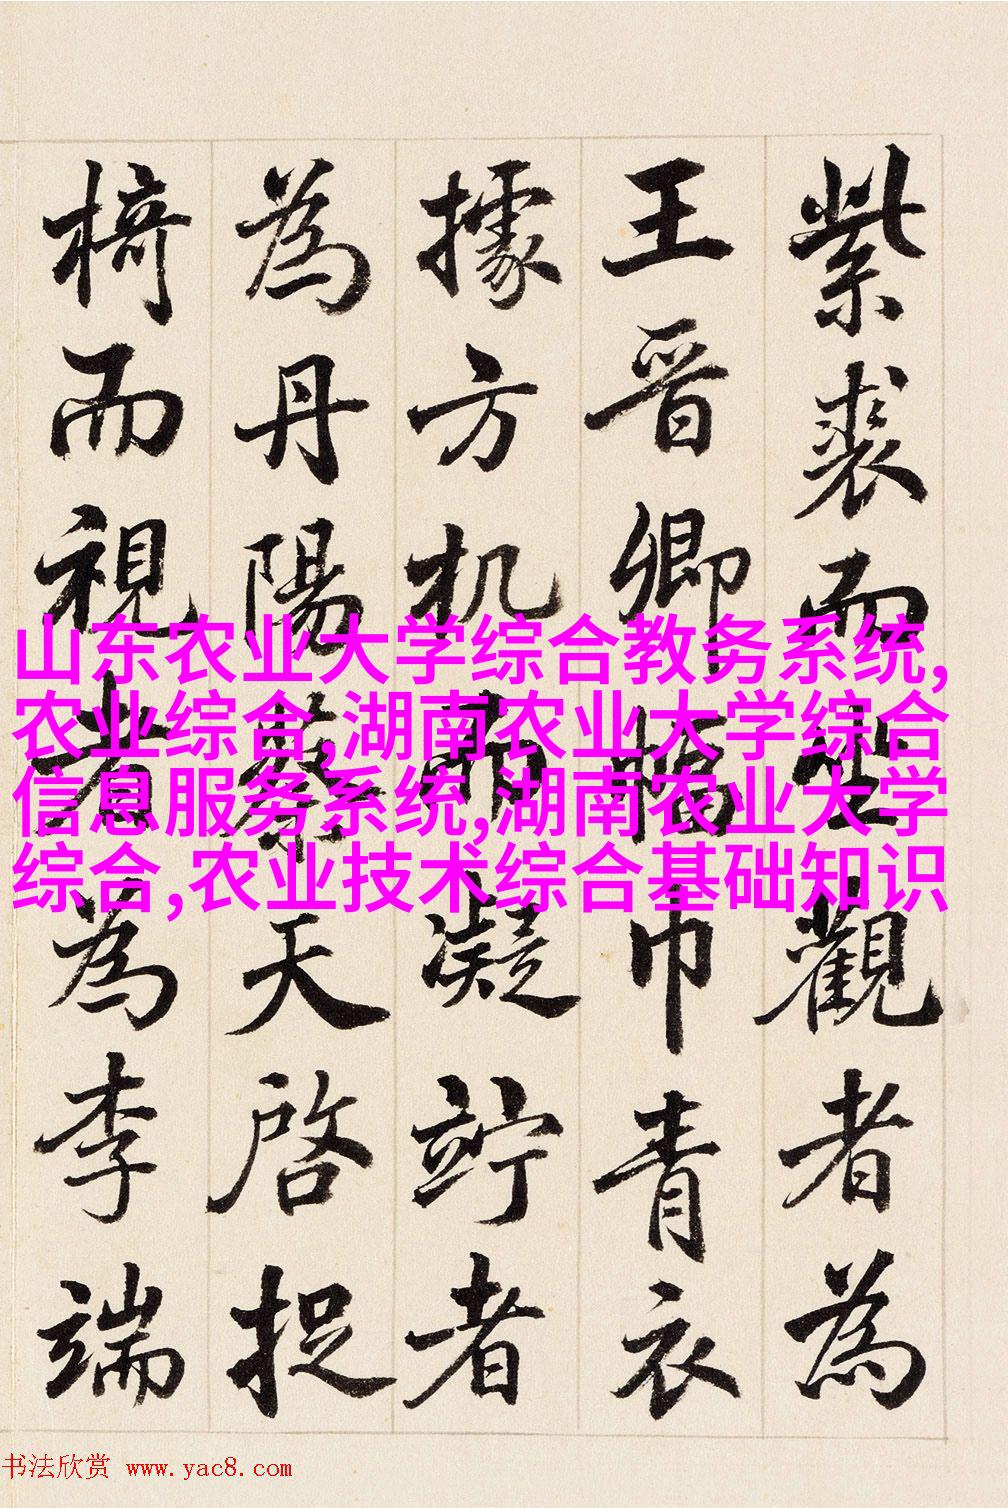 紫裘而坐觀者為
王晋卿幅巾青衣
據方机而凝竚者
為丹陽蔡天啓捉
椅而視者為李端
山东农业大学综合教务系统,
农业综合,湖南农业大学综合
信息服务系统,湖南农业大学
综合,农业技术综合基础知识
书法欣赏 www.yac8.com